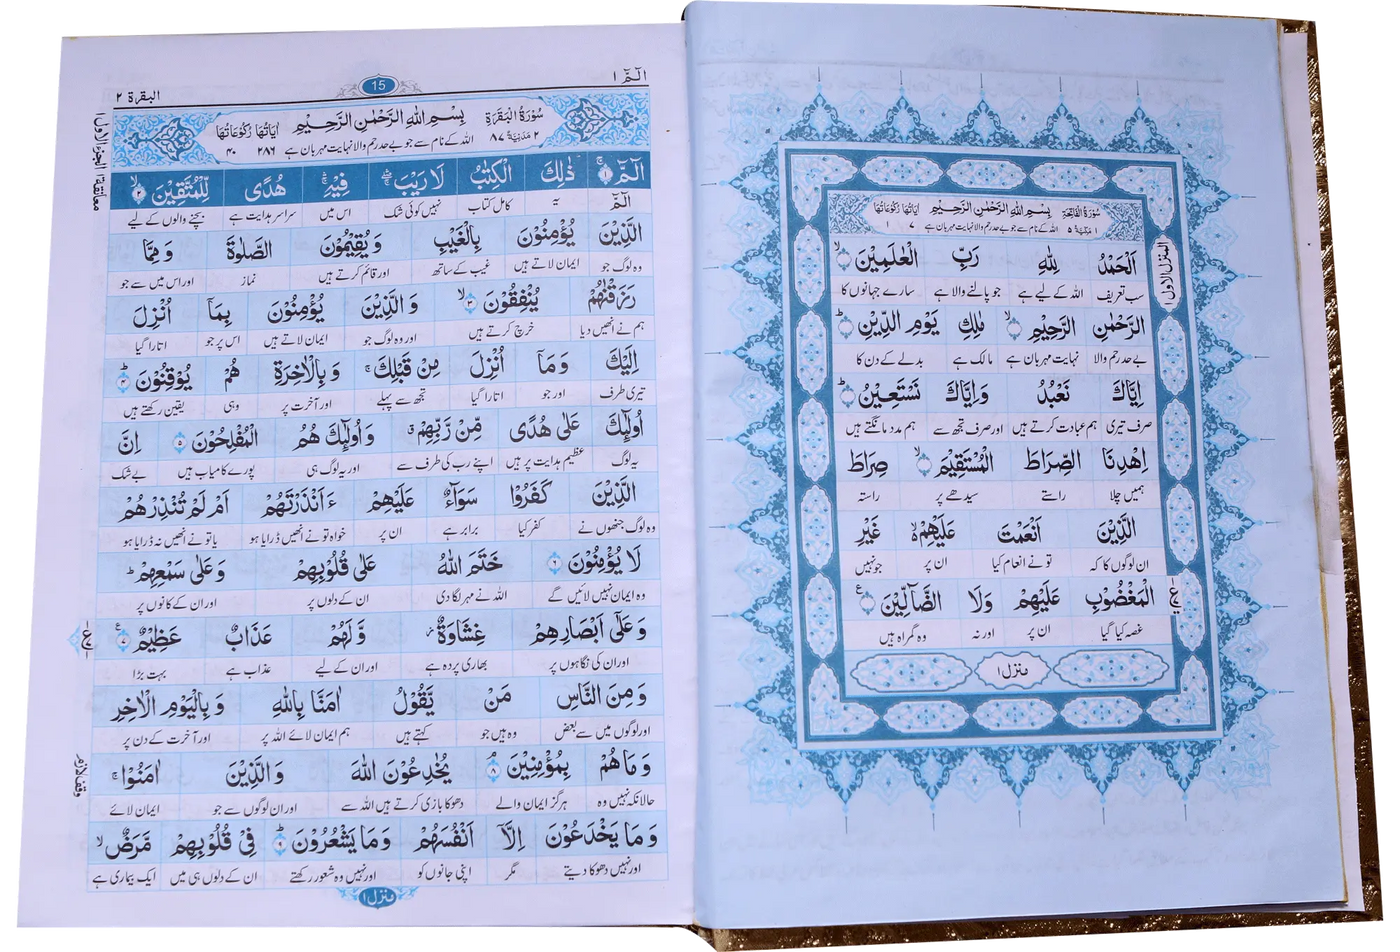 سُوْرَةُ الْفَاتِحَةِ بِسْمِ اللهِ الرَّحْمٰنِ الرَّحِيْمِ اٰيَاتُهَا رُكُوْعَاتُهَا
١ مَكِّيَّةٌ ٥ اللہ کے نام سے جو بے حد رحم والا نہایت مہربان ہے ٧ ١
اَلْحَمْدُ لِلّٰهِ رَبِّ الْعٰلَمِيْنَ ۙ﴿١﴾
سب تعریف اللہ کے لیے ہے جو پالنے والا ہے سارے جہانوں کا
الرَّحْمٰنِ الرَّحِيْمِ ۙ﴿٢﴾ مٰلِكِ يَوْمِ الدِّيْنِ ؕ﴿٣﴾
بے حد رحم والا نہایت مہربان ہے مالک ہے بدلے کے دن کا
اِيَّاكَ نَعْبُدُ وَاِيَّاكَ نَسْتَعِيْنُ ؕ﴿٤﴾
صرف تیری ہم عبادت کرتے ہیں اور صرف تجھ سے ہم مدد مانگتے ہیں
اِهْدِنَا الصِّرَاطَ الْمُسْتَقِيْمَ ۙ﴿٥﴾ صِرَاطَ
ہمیں چلا راستے سیدھے پر راستہ
الَّذِيْنَ اَنْعَمْتَ عَلَيْهِمْ ۙ۬ غَيْرِ
ان لوگوں کا کہ تو نے انعام کیا ان پر جو نہیں
الْمَغْضُوْبِ عَلَيْهِمْ وَلَا الضَّآلِّيْنَ
غصہ کیا گیا ان پر اور نہ وہ گمراہ ہیں
منزل ١
المنزل الاول ١
الٓمّٓ ١
15
البقرة ٢
سُوْرَةُ الْبَقَرَةِ بِسْمِ اللهِ الرَّحْمٰنِ الرَّحِيْمِ اٰيَاتُهَا رُكُوْعَاتُهَا
٢ مَدَنِيَّةٌ ٨٧ اللہ کے نام سے جو بے حد رحم والا نہایت مہربان ہے ٢٨٦ ٤٠
الٓمّٓ ۚ﴿١﴾ ذٰلِكَ الْكِتٰبُ لَا رَيْبَ ۛۖ فِيْهِ ۛۚ هُدًى لِّلْمُتَّقِيْنَ ۙ﴿٢﴾
الٓمّٓ یہ کامل کتاب نہیں کوئی شک اس میں سراسر ہدایت ہے بچنے والوں کے لیے
الَّذِيْنَ يُؤْمِنُوْنَ بِالْغَيْبِ وَيُقِيْمُوْنَ الصَّلٰوةَ وَمِمَّا
وہ لوگ جو ایمان لاتے ہیں غیب کے ساتھ اور قائم کرتے ہیں نماز اور اس میں سے جو
رَزَقْنٰهُمْ يُنْفِقُوْنَ ۙ﴿٣﴾ وَالَّذِيْنَ يُؤْمِنُوْنَ بِمَآ اُنْزِلَ
ہم نے انھیں دیا خرچ کرتے ہیں اور وہ لوگ جو ایمان لاتے ہیں اس پر جو اتارا گیا
اِلَيْكَ وَمَآ اُنْزِلَ مِنْ قَبْلِكَ ۚ وَبِالْاٰخِرَةِ هُمْ يُوْقِنُوْنَ ؕ﴿٤﴾
تیری طرف اور جو اتارا گیا تجھ سے پہلے اور آخرت پر وہی یقین رکھتے ہیں
اُولٰٓئِكَ عَلٰى هُدًى مِّنْ رَّبِّهِمْ ۗ وَاُولٰٓئِكَ هُمُ الْمُفْلِحُوْنَ ﴿٥﴾ اِنَّ
یہ لوگ عظیم ہدایت پر ہیں اپنے رب کی طرف سے اور یہ لوگ ہی پورے کامیاب ہیں بے شک
الَّذِيْنَ كَفَرُوْا سَوَآءٌ عَلَيْهِمْ ءَاَنْذَرْتَهُمْ اَمْ لَمْ تُنْذِرْهُمْ
وہ لوگ جنھوں نے کفر کیا برابر ہے ان پر خواہ تو نے انھیں ڈرایا ہو یا تو نے انھیں نہ ڈرایا ہو
لَا يُؤْمِنُوْنَ ﴿٦﴾ خَتَمَ اللهُ عَلٰى قُلُوْبِهِمْ وَعَلٰى سَمْعِهِمْ ؕ
وہ ایمان نہیں لائیں گے اللہ نے مہر لگا دی ان کے دلوں پر اور ان کے کانوں پر
وَعَلٰٓى اَبْصَارِهِمْ غِشَاوَةٌ ۫ وَّلَهُمْ عَذَابٌ عَظِيْمٌ ﴿٧﴾
اور ان کی نگاہوں پر بھاری پردہ ہے اور ان کے لیے عذاب ہے بہت بڑا
وَمِنَ النَّاسِ مَنْ يَّقُوْلُ اٰمَنَّا بِاللهِ وَبِالْيَوْمِ الْاٰخِرِ
اور لوگوں میں سے بعض وہ ہیں جو کہتے ہیں ہم ایمان لائے اللہ پر اور آخرت کے دن پر
وَمَا هُمْ بِمُؤْمِنِيْنَ ۘ﴿٨﴾ يُخٰدِعُوْنَ اللهَ وَالَّذِيْنَ اٰمَنُوْا ۚ
حالانکہ نہیں وہ ہرگز ایمان والے دھوکا بازی کرتے ہیں اللہ سے اور ان لوگوں سے جو ایمان لائے
وَمَا يَخْدَعُوْنَ اِلَّآ اَنْفُسَهُمْ وَمَا يَشْعُرُوْنَ ؕ﴿٩﴾ فِيْ قُلُوْبِهِمْ مَّرَضٌ ۙ
اور نہیں دھوکا دیتے مگر اپنی جانوں کو اور نہیں وہ شعور رکھتے ان کے دلوں ہی میں ایک بیماری ہے
منزل ١
معانقة ١ الجزء الاول ١
وقف لازم